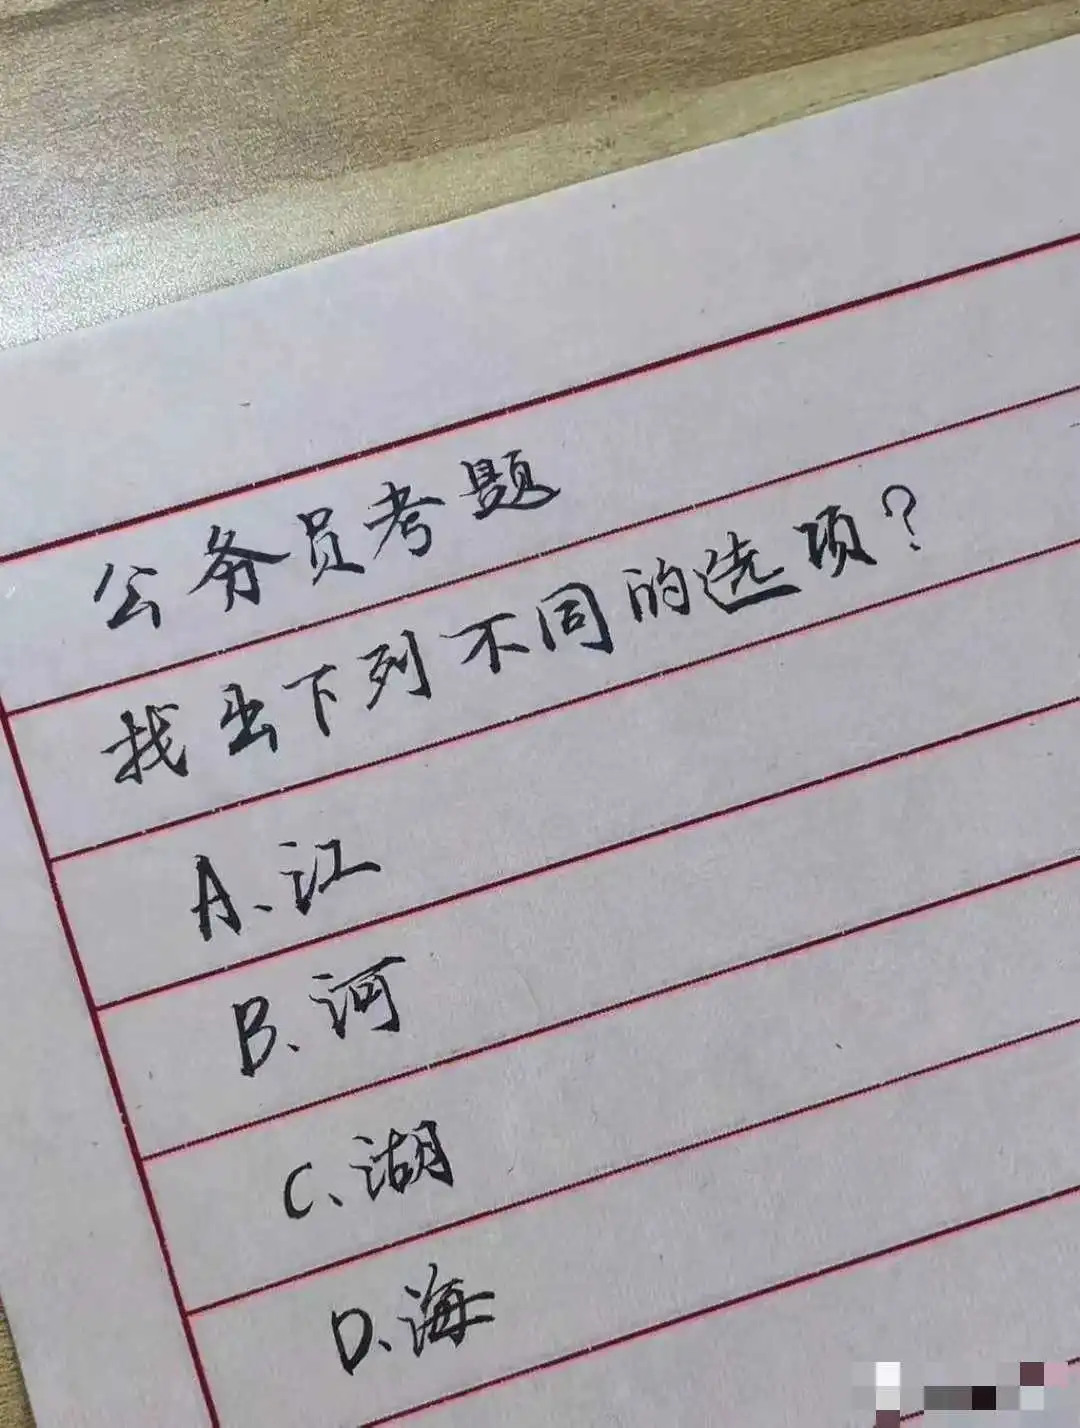 公务员考题
找出下列不同的选项？
A、江
B、河
C、湖
D、海